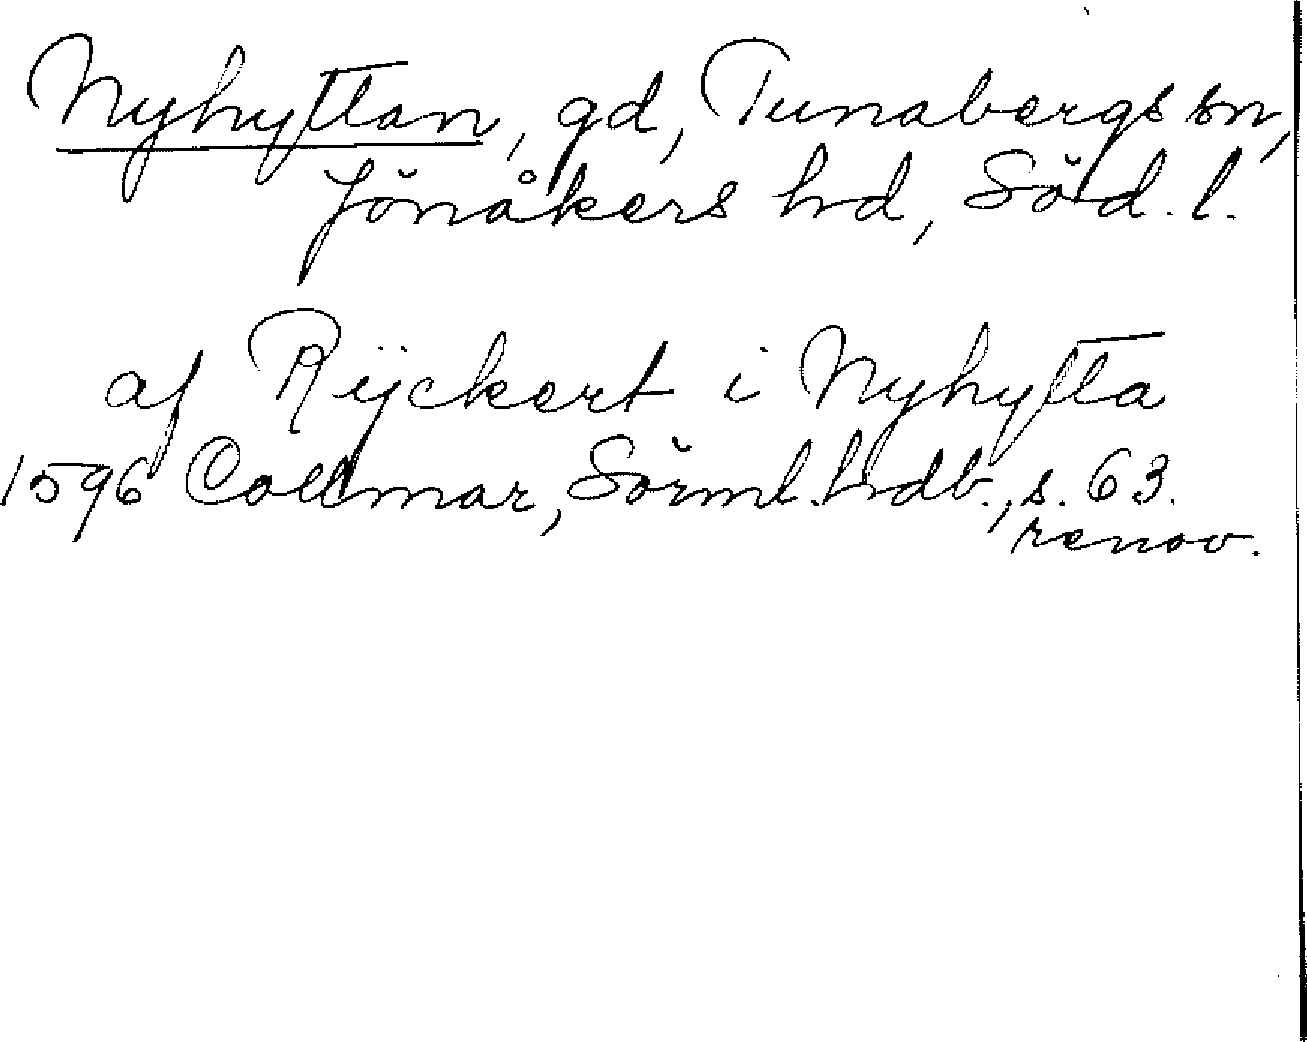 Nyhyttan, gd, Tunabergs sn,
Jönåkers hd, Söd. l.
af Rÿckert i Nyhytta
1596 Collmar, Sörml. hdb., s. 63.
renov.